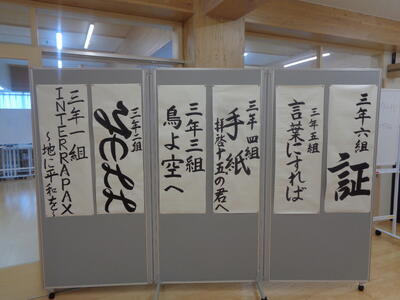 三年一組
INTERRAPAX
～地に平和を～
三年二組
yell
三年三組
鳥よ空へ
三年四組
手紙
拝啓十五の君へ
三年五組
言葉にすれば
三年六組
証